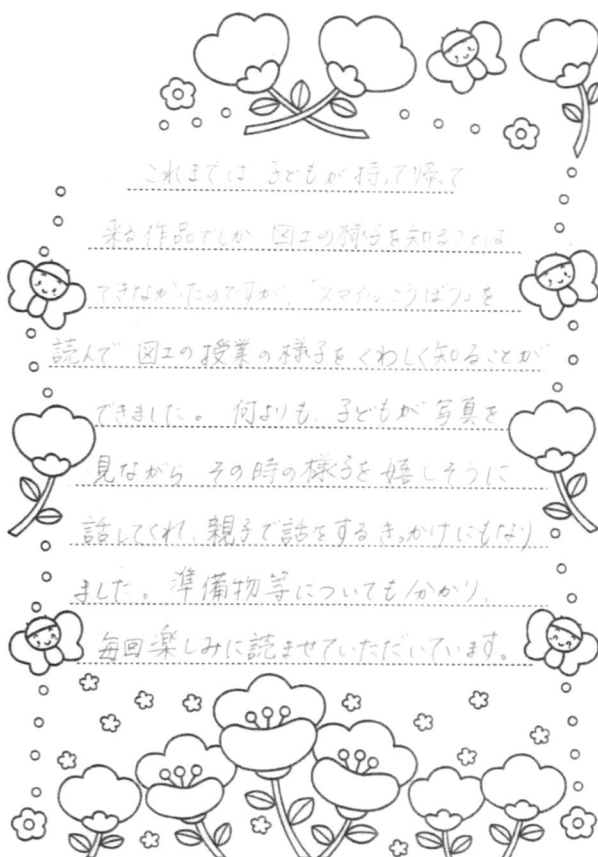 これまでは、子どもが持って帰って
来る作品でしか、図工の様子を知ることは
できなかったのですが、「スマイルこうぼう」を
読んで 図工の授業の様子をくわしく知ることが
できました。 何よりも、子どもが写真を
見ながら その時の様子を嬉しそうに
話してくれ、親子で話をするきっかけにもなり
ました。 準備物等についても分かり、
毎回楽しみに読ませていただいています。